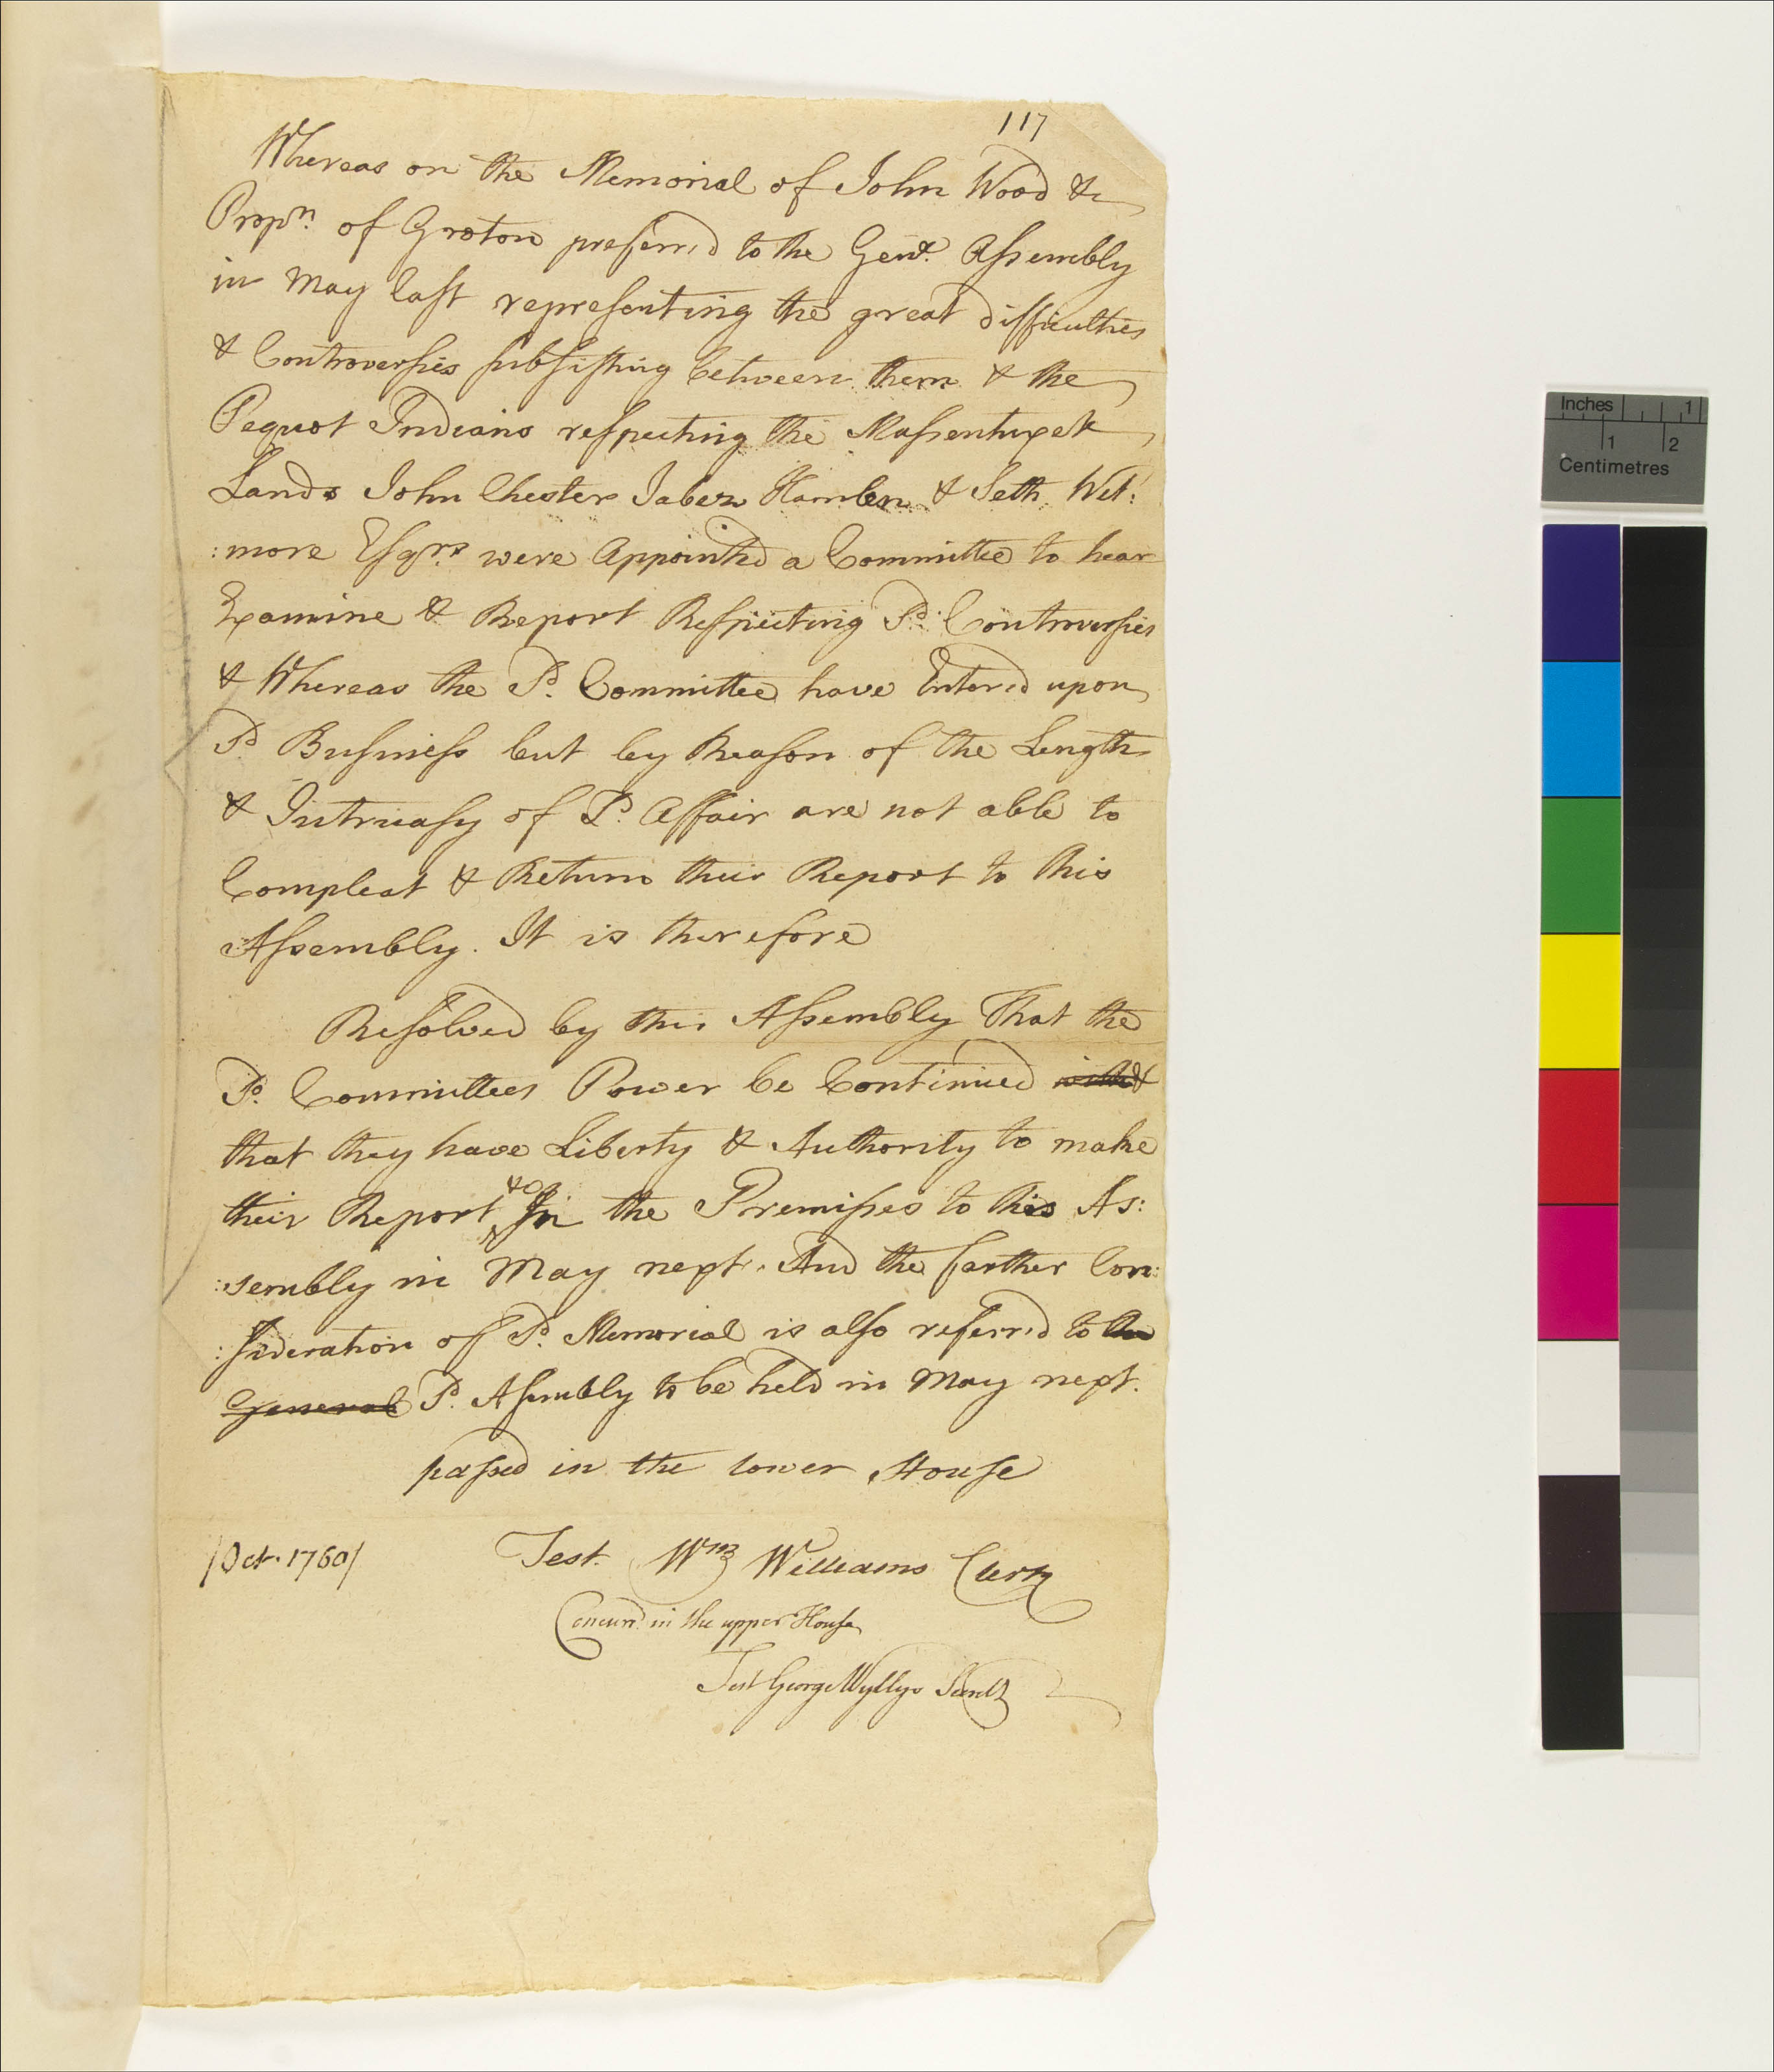 117
Whereas on the Memorial of John Wood &c
Propn. of Groton preferrd to the Genl. Assembly
in May last representing the great difficulties
& Controversies subsisting between them & the
Pequot Indians respecting the Massentuxett
Lands John Chester Jabez Hamlen & Seth Wet:
:more Esqrs were Appointed a Committee to hear
Examine & Report Respecting Sd. Controversies
& Whereas the Sd. Committee have Enterd upon
Sd Business but by Reason of the Length
& Intricasy of Sd. Affair are not able to
Compleat & Return their Report to this
Assembly. It is therefore
Resolved by this Assembly That the
Sd. Committees Power be Continued &
that they have Liberty & Authority to make
their Report &c In the Premisses to this As:
:sembly in May next. And the farther Con:
:sideration of Sd. Memorial is also referrd to the
General Sd. Assembly to be held in May next.
passed in the lower House
/Oct. 1760/ Test. Wm Williams Clerk
Concurd. in the upper House
Test George Wyllys Secretz
Inches 1
1 2
Centimetres